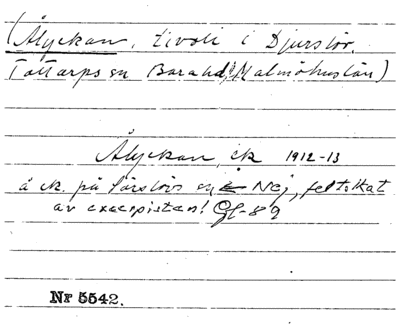 (Ålyckan, tivoli i Djurslöv.
Tottarps sn Bara hd, Malmöhus län)
Ålyckan, ek 1912-13
å ek. på Särslövs Nej, feltolkat
av excerpisten! Gl-89
Nr 5542.